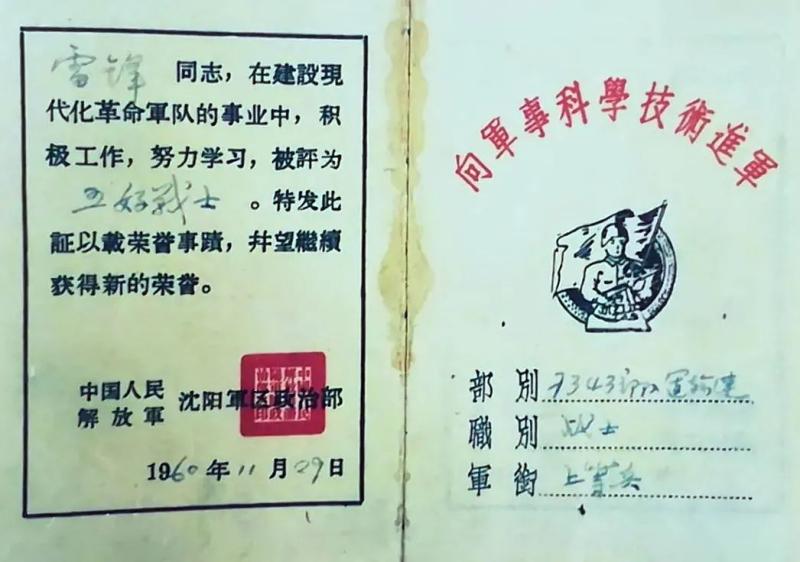 雷锋 同志，在建設現
代化革命軍队的事业中，积
极工作，努力学习，被評为
五好战士 。特发此
証以載荣誉事蹟，幷望繼續
获得新的荣誉。
中国人民
解放軍 沈阳軍区政治部
1960年11月29日
向軍事科學技術進軍
部別 7343部队运输連
職別 战士
軍銜 上等兵